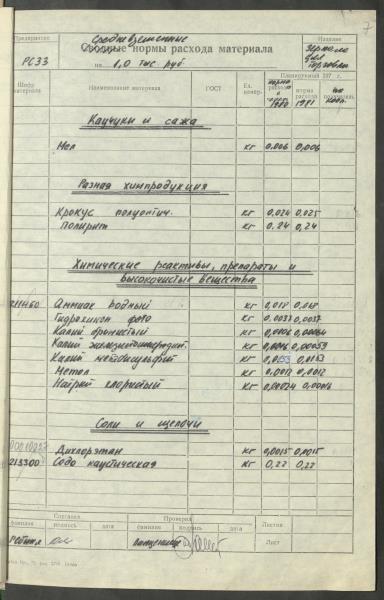 7
Предприятие
Средневзвешенные
Сводные нормы расхода материала
Изделие
РСЗЗ
на 1,0 тыс. руб.
Зеркала
для
торговли
Шифр материала
Наименование материалов
ГОСТ
Ед. измер.
Планируемый 197 г.
норма расхода 1980
норма расхода 1981
Каучуки и сажа
Мел кг 0,006 0,006
Разная химпродукция
Крокус полуотич. кг 0,024 0,025
Полирит кг 0,24 0,24
Химические реактивы, препараты и
высокочистые вещества
Аммиак водный кг
Гидрахинон фото кг 0,0037 0,0037
Калий бромистый кг
Калий железистосинеродист. кг 0,0046 0,00059
Калий метабисульфит кг 0,0153 0,0153
Метол кг 0,0012 0,0012
Натрий хлористый кг 0,00024
Соли и щелочи
Дихлорэтан кг 0,0015 0,0015
213300 Сода каустическая кг 0,22 0,22
Составил
Проверил
Листов
фамилия подпись дата фамилия подпись дата
Лист